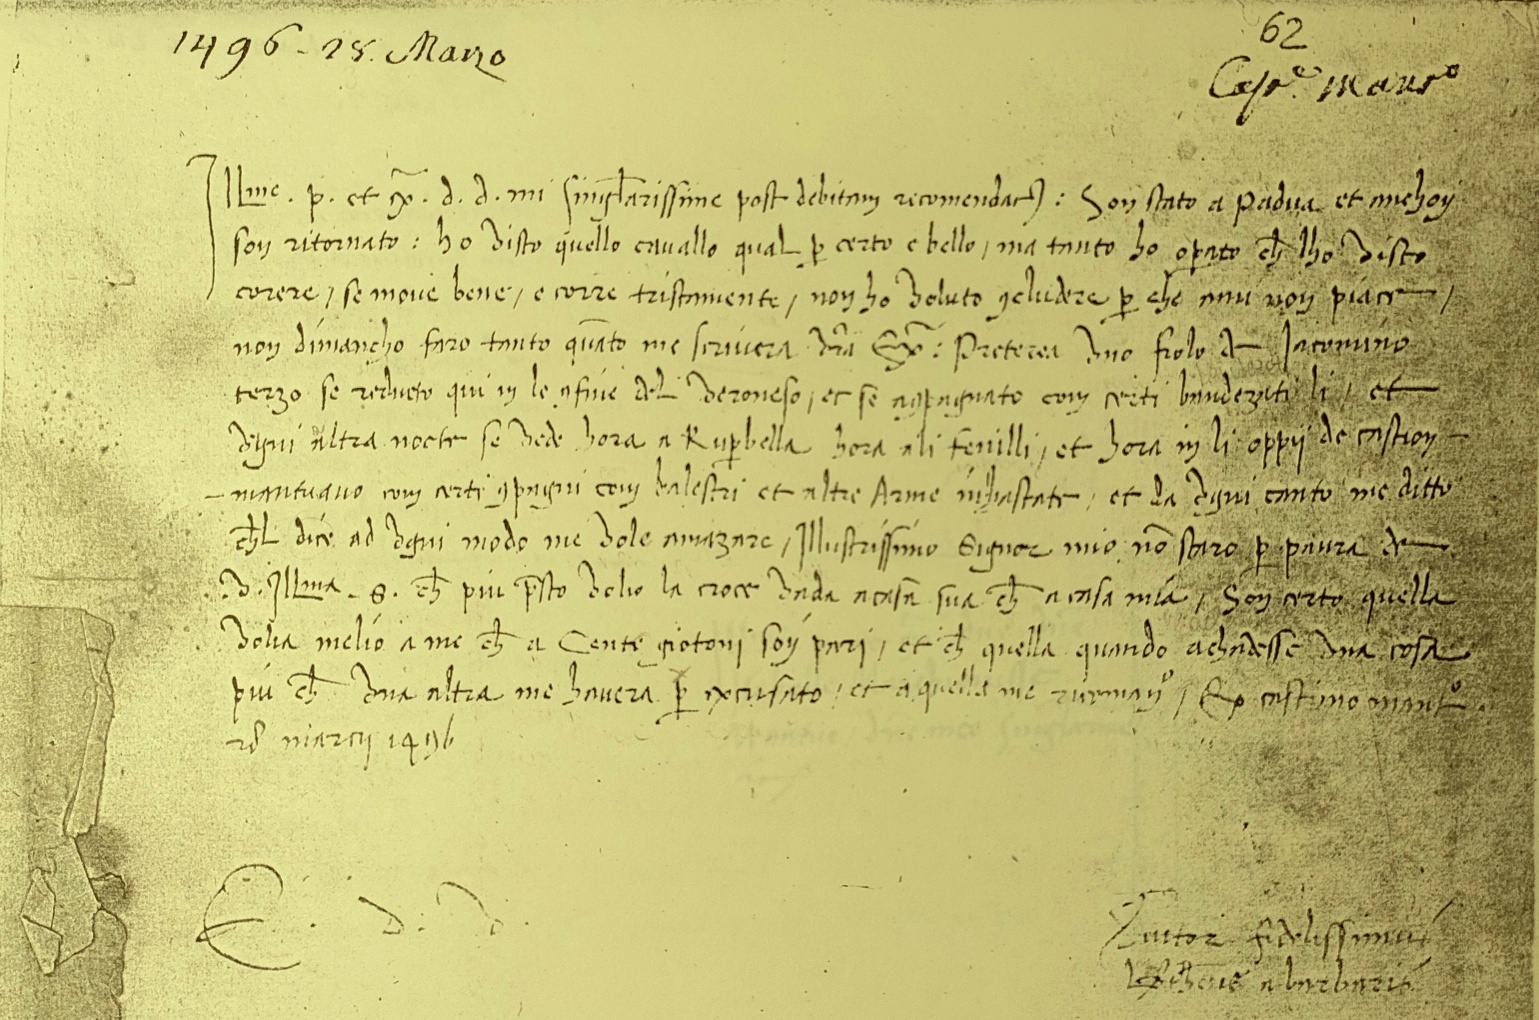 1496 - 28. Marzo
62
Cast.e Mant.o
Illme. p. et ex. d. d. mi singlarissime post debitam recomendat. : Son stato a Padua et anchoy
son ritornato : ho visto quello cavallo qual p certo e bello, ma tanto ho opato ch lho visto
corere, se move bene, e corre tristamente, non ho voluto cludere p che anu non piace,
non dimancho faro tanto quato me scrivera vra Ex. : Preterea uno fiolo de Jacomino
terzo se reducto qui in le cfine del Veronese, et se acpagnato com certi bandezati li, et
ogni altra nocte se vede hora a Ruperbella hora ali fenilli, et hora in li oppij de castion
mantuano com certi cpagni com balestri et altre Arme inhastate, et da ogni canto me ditto
chl dice ad ogni modo me vole amazare, Illustrissimo Signor mio no staro p paura de
v. Illma. S. ch piu psto volio la croce vada a casa sua ch a casa mia, Son certo quella
volia melio a me ch a Cente giotoni soy pari, et ch quella quando achadesse una cosa
piu ch una altra me havera p excusato, et a quella me Ex castiono mant.o
28 marcij 1496
E. d. v.
Servitor fidelissimus
a barbaris